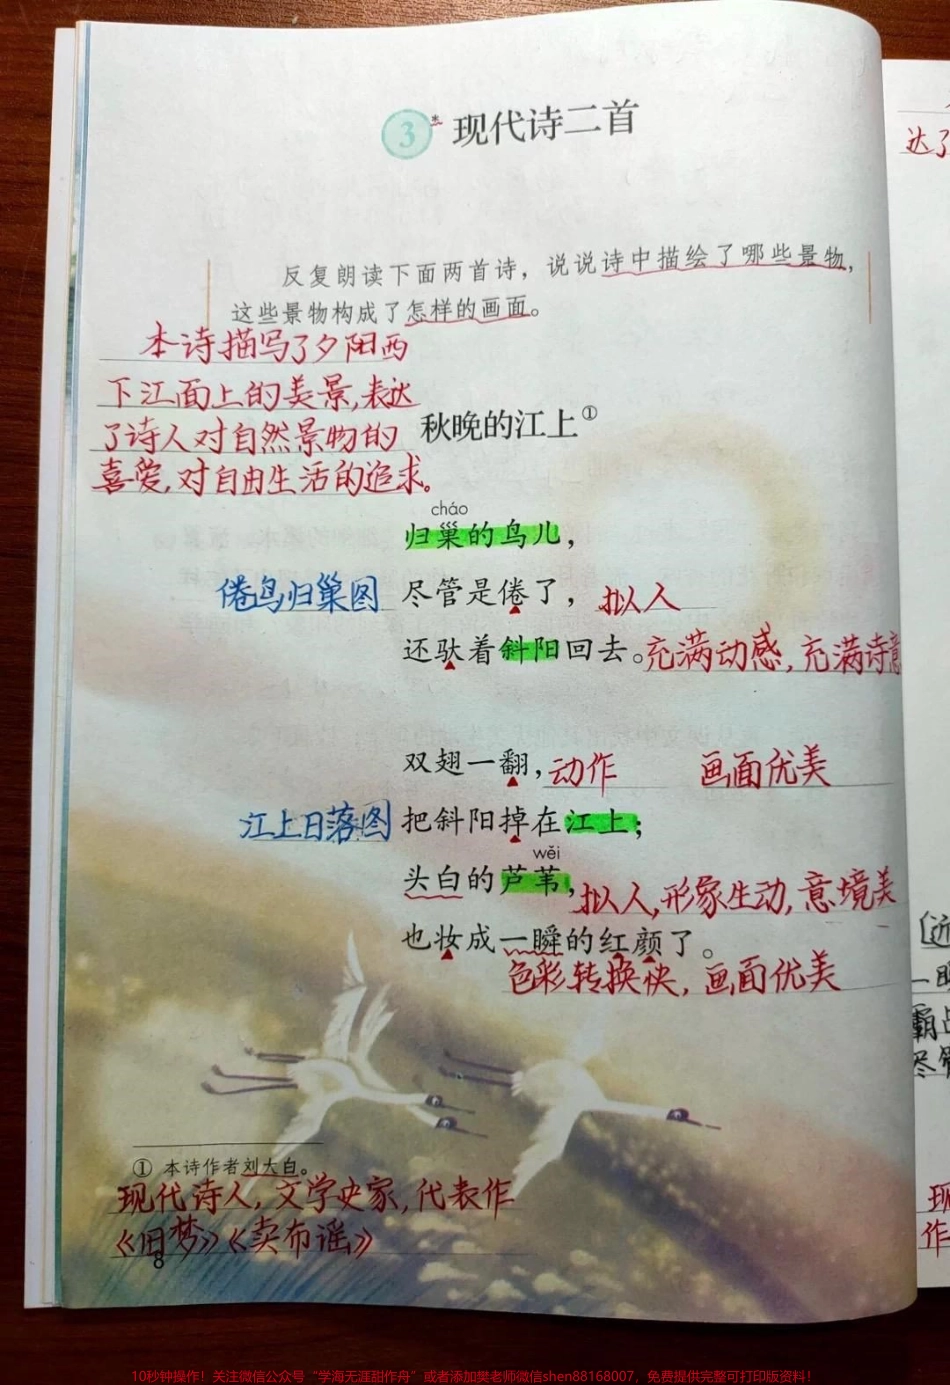 3* 现代诗二首
反复朗读下面两首诗，说说诗中描绘了哪些景物，
这些景物构成了怎样的画面。
本诗描写了夕阳西
下江面上的美景,表达
了诗人对自然景物的
喜爱,对自由生活的追求。
秋晚的江上①
cháo
归巢的鸟儿，
倦鸟归巢图 尽管是倦了， 拟人
还驮着斜阳回去。充满动感,充满诗意
双翅一翻，动作 画面优美
江上日落图 把斜阳掉在江上；
wěi
头白的芦苇，拟人,形象生动,意境美
也妆成一瞬的红颜了。
色彩转换快,画面优美
① 本诗作者刘大白。
现代诗人,文学史家,代表作
《旧梦》《卖布谣》
8
达了
近
一瞬
霸占
尽管
现
作
10秒钟操作！关注微信公众号“学海无涯甜作舟”或者添加樊老师微信shen88168007，免费提供完整可打印版资料！